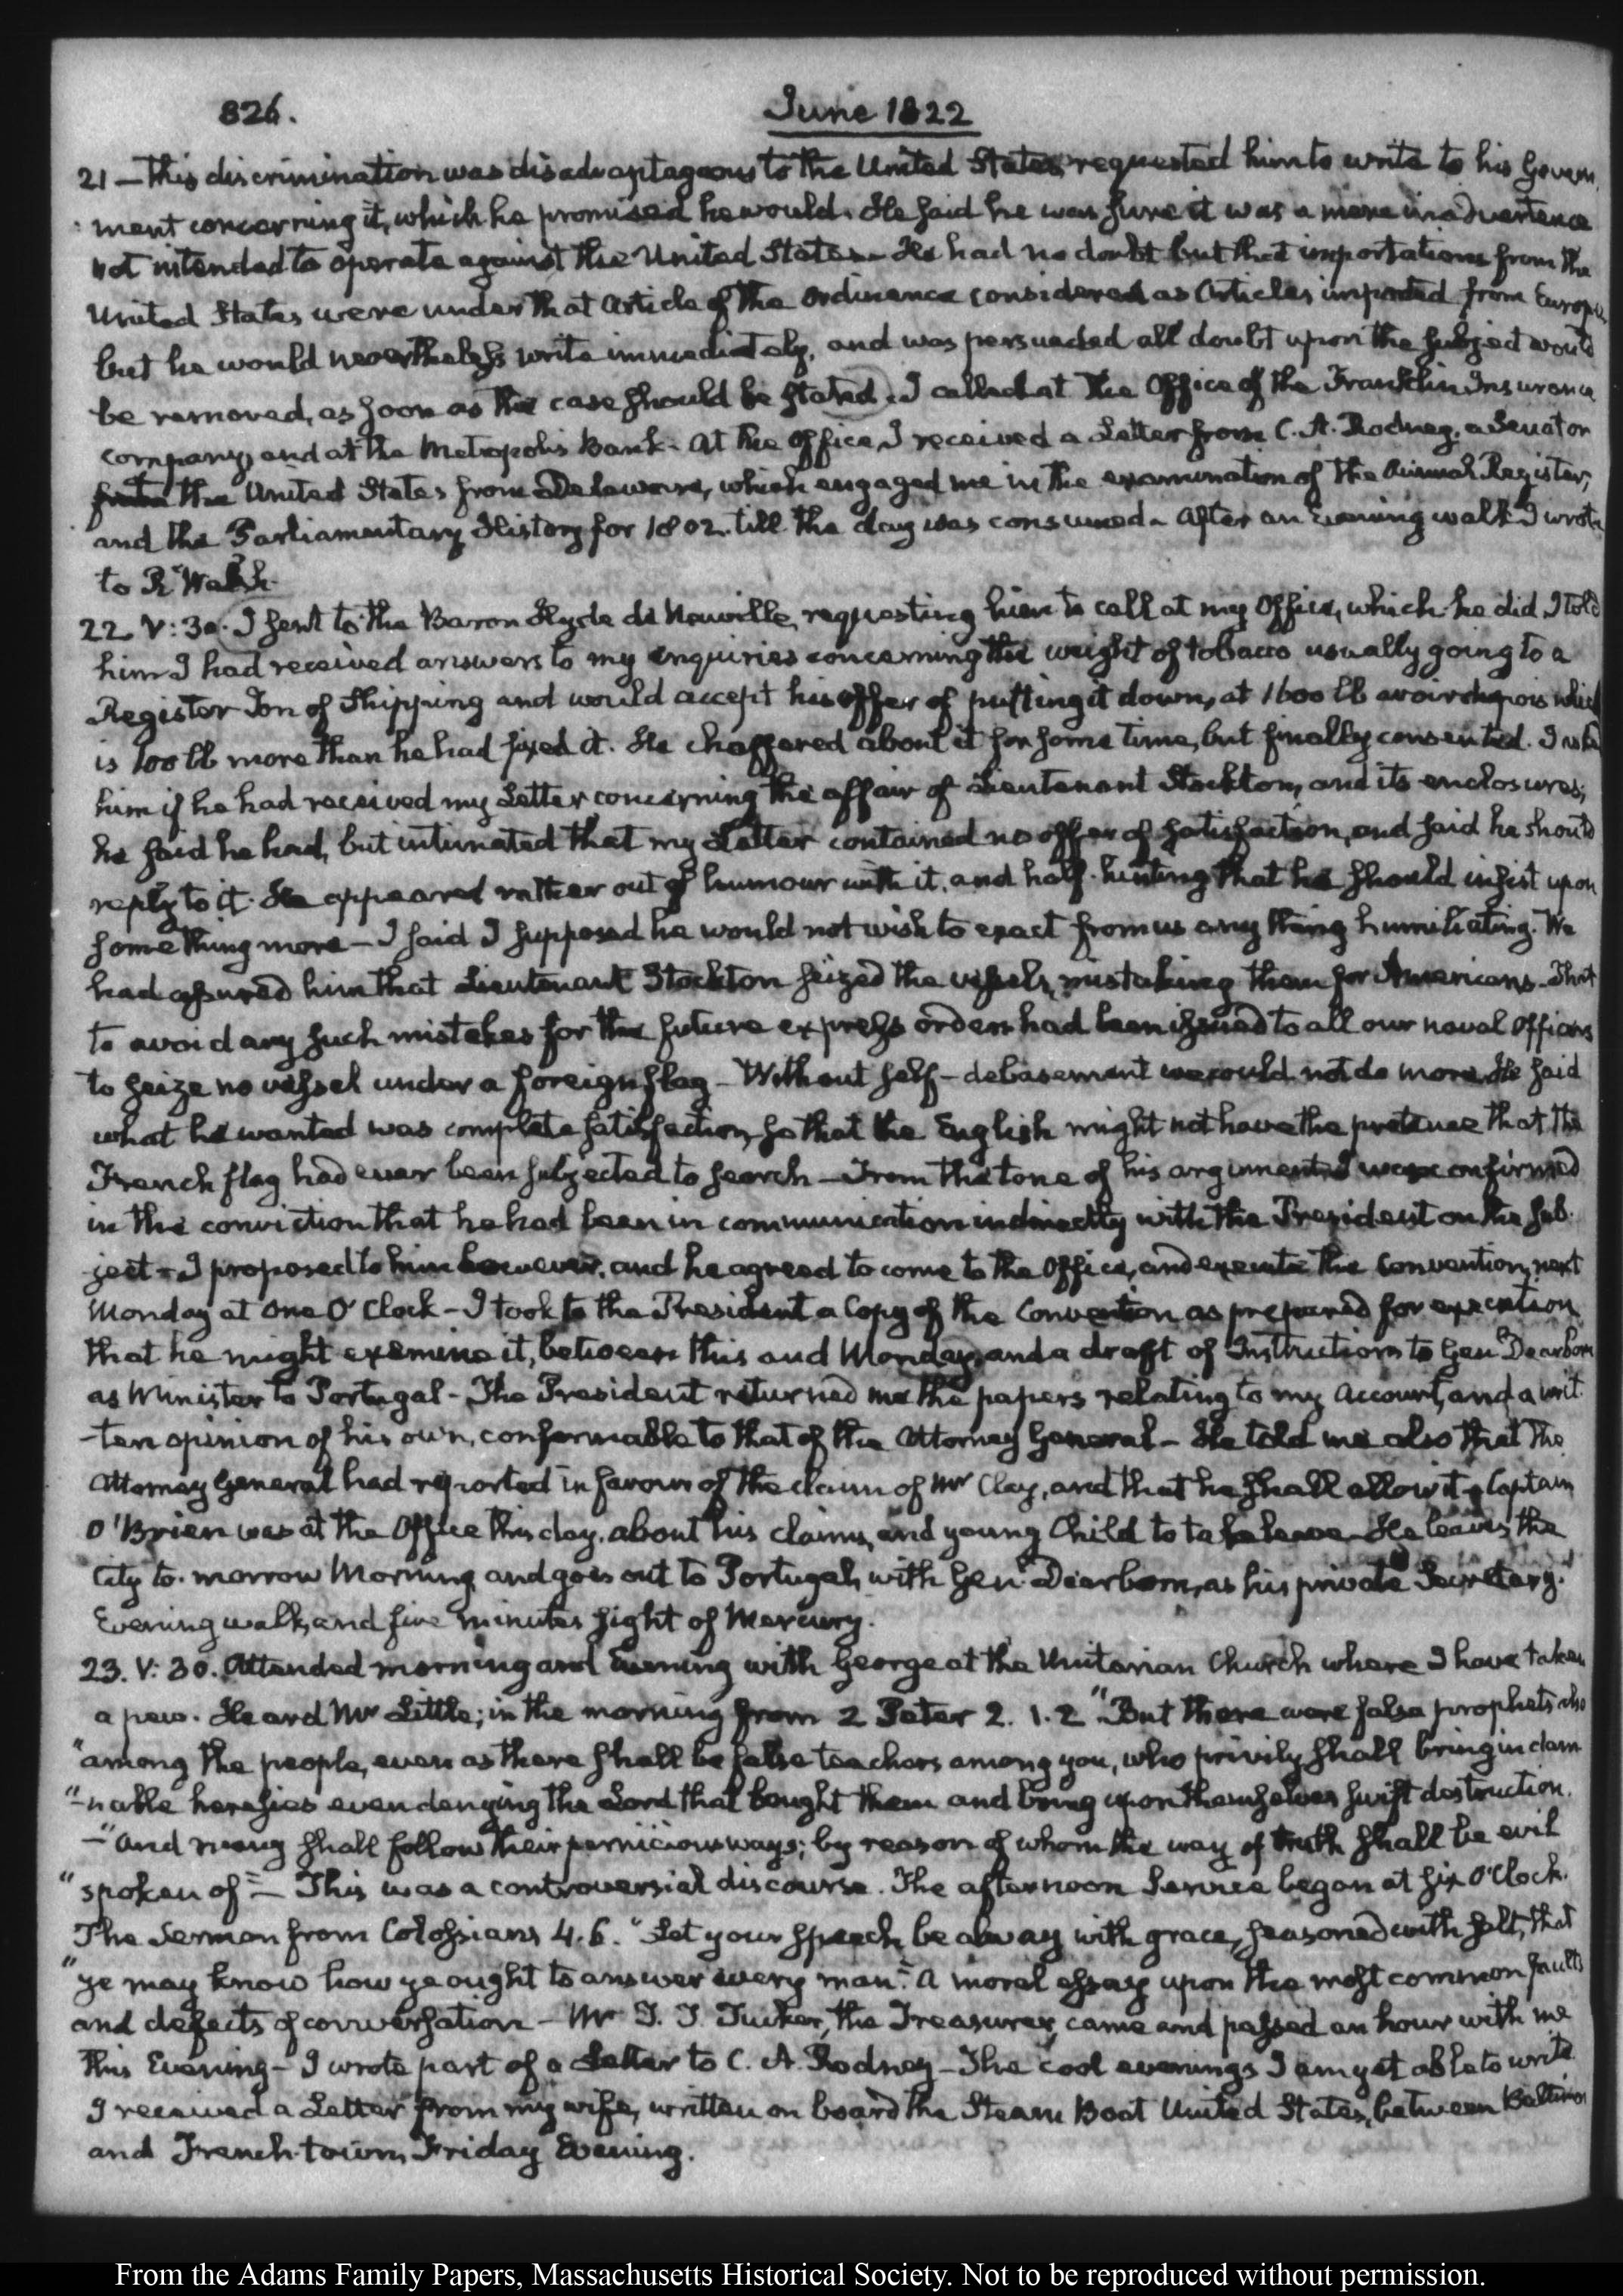 826.
June 1822
21 — This discrimination was disadvantageous to the United States requested him to write to his Govern
ment concerning it, which he promised he would. He said he was sure it was a mere inadvertence
not intended to operate against the United States — He had no doubt but that importations from the
United States were under that Article of the Ordinance considered as Articles imported from Europe,
but he would nevertheless write immediately, and was persuaded all doubt upon the subject would
be removed, as soon as the case should be stated. I called at the Office of the Franklin Insurance
company, and at the Metropolis Bank — At the Office, I received a Letter from C. A. Rodney, a Senator
the United States from Delaware, which engaged me in the examination of the Annual Register,
and the Parliamentary History for 1802. till the day was consumed — After an Evening walk I wrote
to R. Walsh.
22. V: 30. I sent to the Baron Hyde de Neuville, requesting him to call at my Office, which he did I told
him I had received answers to my enquiries concerning the weight of tobacco usually going to a
Register Ton of Shipping and would accept his offer of putting it down, at 1600 lb avoirdupois which
is 100 lb more than he had fixed it. He chaffered about it for some time, but finally consented. I asked
him if he had received my Letter concerning the affair of Lieutenant Stockton, and its enclosures;
he said he had, but intimated that my Letter contained no offer of satisfaction, and said he should
reply to it. He appeared rather out of humour with it, and half-hinting that he should insist upon
something more — I said I supposed he would not wish to exact from us any thing humiliating. We
had assured him that Lieutenant Stockton seized the vessels, mistaking them for Americans — That
to avoid any such mistakes for the future express orders had been issued to all our naval Officers
to seize no vessel under a foreign flag — Without self-debasement we could not do more. He said
what he wanted was complete satisfaction, so that the English might not have the pretence that the
French flag had ever been subjected to search — From the tone of his arguments I was confirmed
in the conviction that he had been in communication indirectly with the President on the sub-
ject — I proposed to him however, and he agreed to come to the Office, and execute the Convention, next
Monday at One O'Clock — I took to the President a Copy of the Convention as prepared for execution
that he might examine it, between this and Monday, and a draft of Instructions to Genl. Dearborn
as Minister to Portugal — The President returned me the papers relating to my Account, and a writ-
-ten opinion of his own, conformable to that of the Attorney General — He told me also that the
Attorney General had reported in favour of the claim of Mr Clay, and that he shall allow it — Captain
O'Brien was at the Office this day, about his claims, and young Child to take leave — He leaves the
City to-morrow Morning and goes out to Portugal, with Genl. Dearborn, as his private Secretary.
Evening walk, and five minutes sight of Mercury.
23. V: 30. Attended morning and Evening with George at the Unitarian Church where I have taken
a pew. Heard Mr Little; in the morning from 2 Peter 2. 1. 2 "But there were false prophets also
"among the people, even as there shall be false teachers among you, who privily shall bring in dam
"-nable heresies even denying the Lord that bought them and bring upon themselves swift destruction.
—"And many shall follow their pernicious ways; by reason of whom the way of truth shall be evil
"spoken of" — This was a controversial discourse. The afternoon Service began at six O'Clock.
The Sermon from Colossians 4. 6. "Let your speech be alway with grace, seasoned with salt, that
"ye may know how ye ought to answer every man." A moral essay upon the most common faults
and defects of conversation — Mr T. T. Tucker, the Treasurer, came and passed an hour with me
this Evening — I wrote part of a Letter to C. A. Rodney — The cool evenings I am yet able to write
I received a Letter from my wife, written on board the Steam Boat United States, between Baltimore
and French-town, Friday Evening.
From the Adams Family Papers, Massachusetts Historical Society. Not to be reproduced without permission.